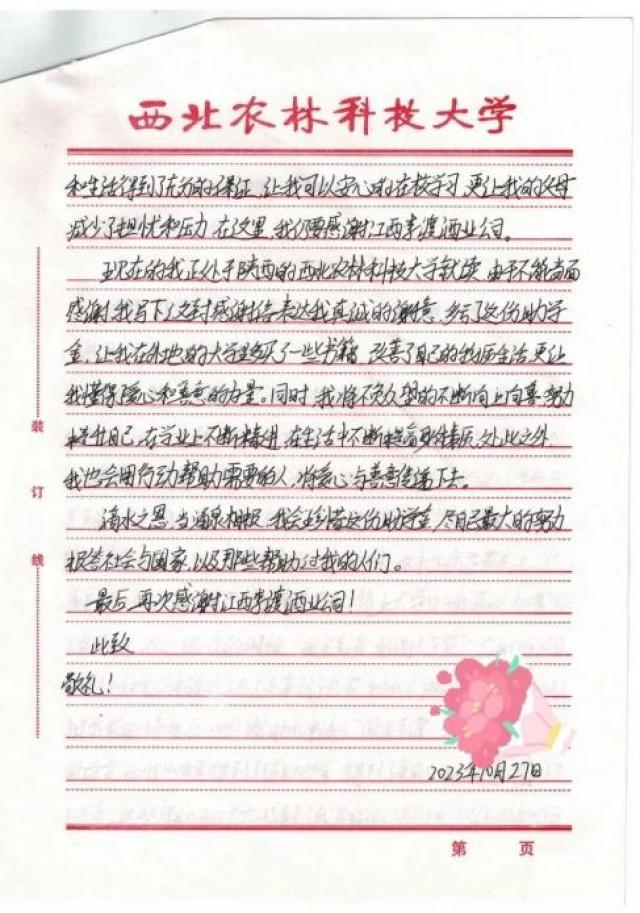 西北农林科技大学
和生活得到了充分的保证，让我可以安心的在校学习，更让我的父母
减少了担忧和压力，在这里，我仍要感谢江西李渡酒业公司。
现在的我正处于陕西的西北农林科技大学就读，由于不能当面
感谢，我写下这封感谢信表达我真诚的谢意，多亏了这份助学
金，让我在外地的大学里多买了一些书籍，改善了自己的物质生活，更让
我懂得爱心和善意的力量。同时，我将不负众望的不断向上向善，努力
提升自己，在学业上不断精进，在生活中不断提高，除此之外，
我也会用行动帮助需要的人，将爱心与善意传递下去。
滴水之恩，当涌泉相报，我会珍惜这份助学金，尽自己最大的努力
报答社会与国家，以及那些帮助过我的人们。
最后，再次感谢江西李渡酒业公司！
此致
敬礼！
2023年10月27日
装
订
线
第 页